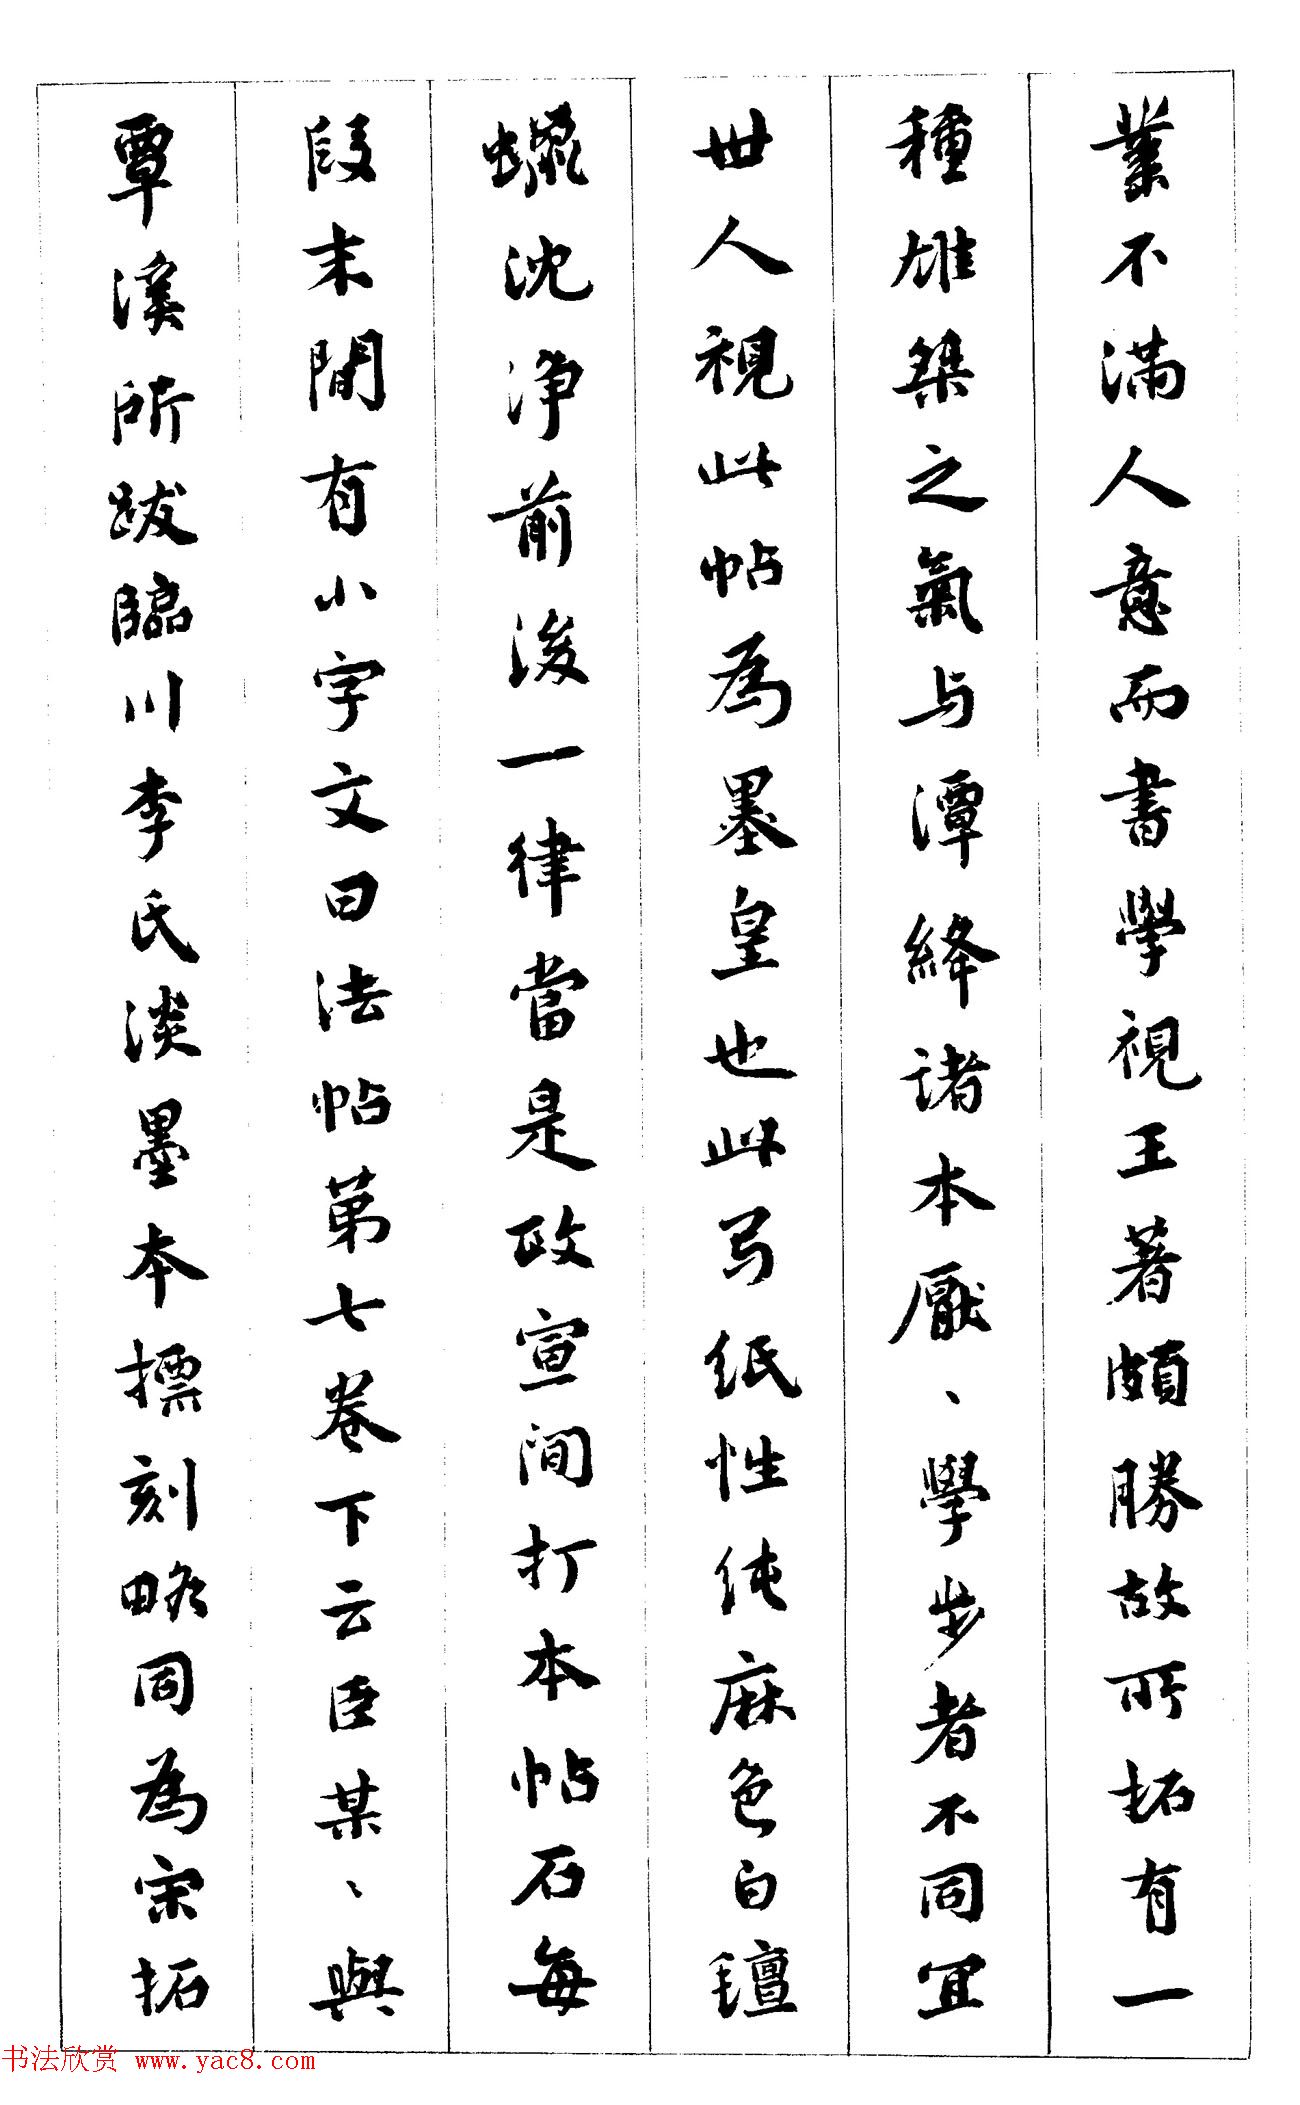 業不滿人意而書學視王著頗勝故所拓有一
種雄桀之氣与潭絳諸本厭、學步者不同宜
世人視此帖為墨皇也此㢧紙性純麻色白氊
蠟沈净前後一律當是政宣间打本帖石每
段末間有小字文曰法帖第七卷下云臣某、與
覃溪所跋臨川李氏淡墨本摽刻略同為宋拓
书法欣赏 www.yac8.com